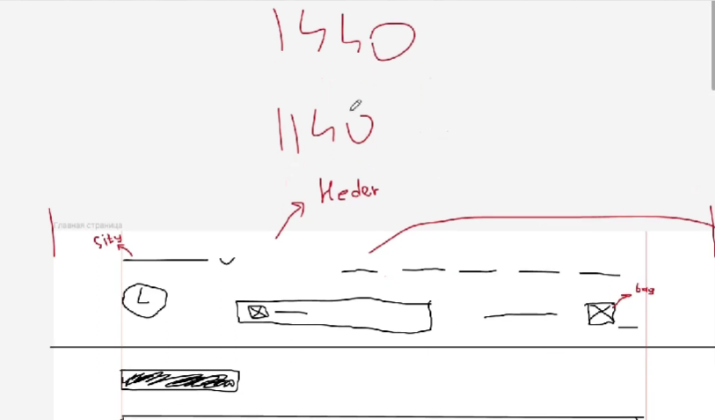 1440
1140
Heder
Главная страница
Sity
L
bag